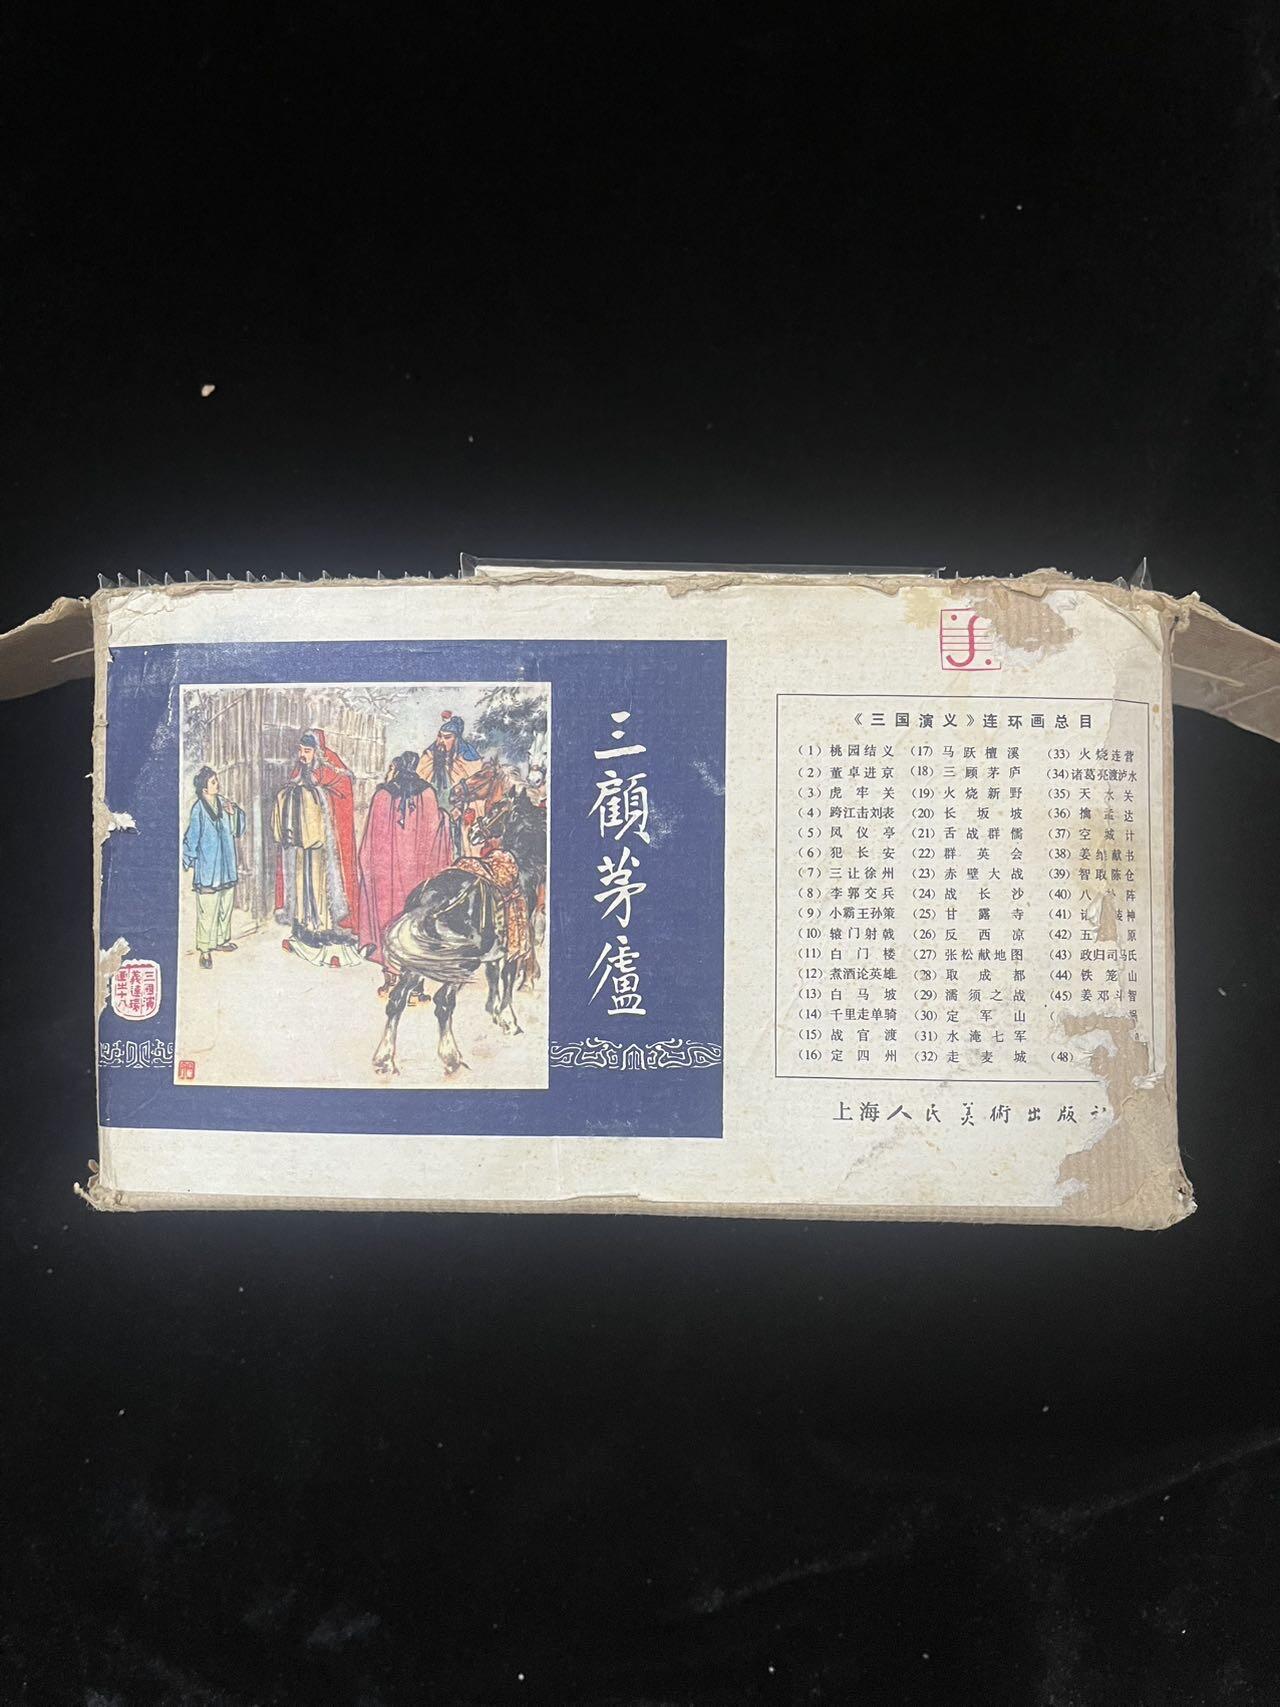 三顧茅廬
三国演
義連環
画之十八
《三国演义》连环画总目
(1) 桃园结义 (17) 马跃檀溪 (33) 火烧连营
(2) 董卓进京 (18) 三顾茅庐 (34) 诸葛亮渡泸水
(3) 虎牢关 (19) 火烧新野 (35) 天水关
(4) 跨江击刘表 (20) 长坂坡 (36) 擒孟达
(5) 凤仪亭 (21) 舌战群儒 (37) 空城计
(6) 犯长安 (22) 群英会 (38) 姜维献书
(7) 三让徐州 (23) 赤壁大战 (39) 智取陈仓
(8) 李郭交兵 (24) 战长沙 (40) 八阵
(9) 小霸王孙策 (25) 甘露寺 (41) 装神
(10) 辕门射戟 (26) 反西凉 (42) 五原
(11) 白门楼 (27) 张松献地图 (43) 政归司马氏
(12) 煮酒论英雄 (28) 取成都 (44) 铁笼山
(13) 白马坡 (29) 濡须之战 (45) 姜邓斗智
(14) 千里走单骑 (30) 定军山
(15) 战官渡 (31) 水淹七军
(16) 定四州 (32) 走麦城 (48)
上海人民美術出版